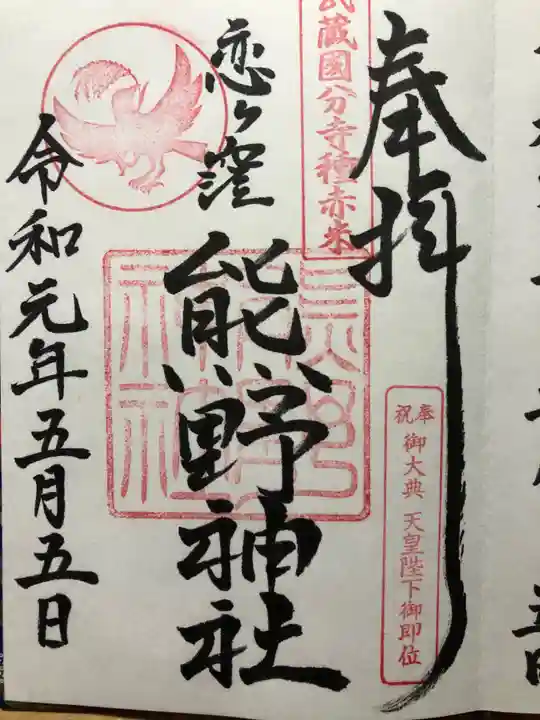 奉拝
武蔵國分寺種赤米
奉祝 御大典 天皇陛下御即位
恋ヶ窪
熊野神社
令和元年五月五日